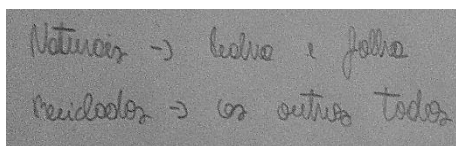 Naturais → lenha e folha
reciclados → os outros todos